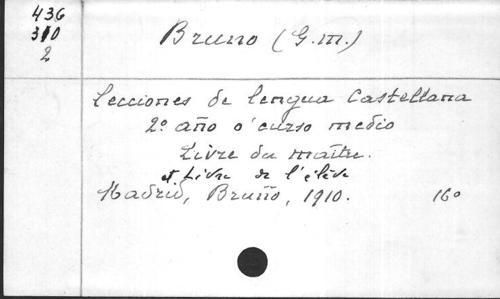 436
310
2
Bruno (G.M.)
Lecciones de lengua Castellana
2º año o' curso medio
Livre du maître.
et Livre de l'élève
Madrid, Bruño, 1910. 16º